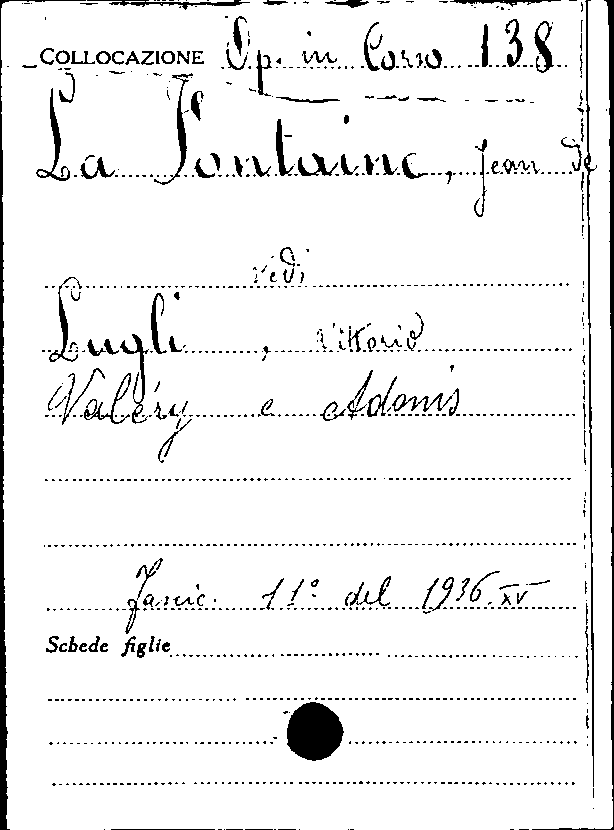 COLLOCAZIONE Op. in Corso 138
La Fontaine, Jean de
vedi
Lugli, Vittorio
Valéry e Adonis
Fascic. 11° del 1936.XV
Schede figlie